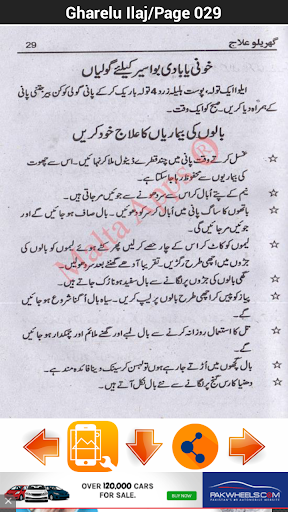 Gharelu Ilaj/Page 029
29
گھریلو علاج
خونی یا بادی بواسیر کیلئے گولیاں
ایلوا ایک تولہ، پوست ہلیلہ زرد 4 تولہ باریک کر کے پانی گولی کو کن بیر جتنی پانی
کے ہمراہ دیا کریں۔ صبح کو ایک وقت۔
بالوں کی بیماریاں کا علاج خود کریں
غسل کرتے وقت پانی میں چند قطرے ڈیٹول ملا کر نہائیں۔ اس سے چھوت
کی بیماریوں سے محفوظ رہا جا سکتا ہے۔
نیم کے پتے اُبال کر اس سے سر دھوئیں۔ جوئیں مر جاتی ہیں۔
باتھوں کا ساگ پانی میں اُبال کر سر کو دھوئیں۔ بال صاف ہو جائیں گے اور
جوئیں مر جائیں گی۔
لیموں کو کاٹ کر اس کے چار حصے کر لیں پھر کٹے ہوئے لیموں کو بالوں کی
جڑوں میں اچھی طرح رگڑیں۔ تقریباً آدھے گھنٹے بعد سر دھوئیں۔
گھی بالوں کی جڑوں پر لگانے سے بال سفید ہونا رُک جاتے ہیں۔
پیاز کو پیس کر اچھی طرح بالوں پر لیپ کریں۔ سیاہ بال اُگنا شروع ہو جائیں
گے۔
تل کا استعمال روزانہ کرنے سے بال لمبے اور گھنے ملائم اور چمکدار ہو جائیں
گے۔
بال گچھوں میں اُڑتے جا رہے ہوں تو لہسن کو سینک دینا فائدہ مند ہے۔
دھنیا کا رس گنج پر لگانے سے نئے بال نکل آتے ہیں۔
Malta Apps ®
OVER 120,000 CARS
FOR SALE.
BUY NOW
PAKWHEELS.COM